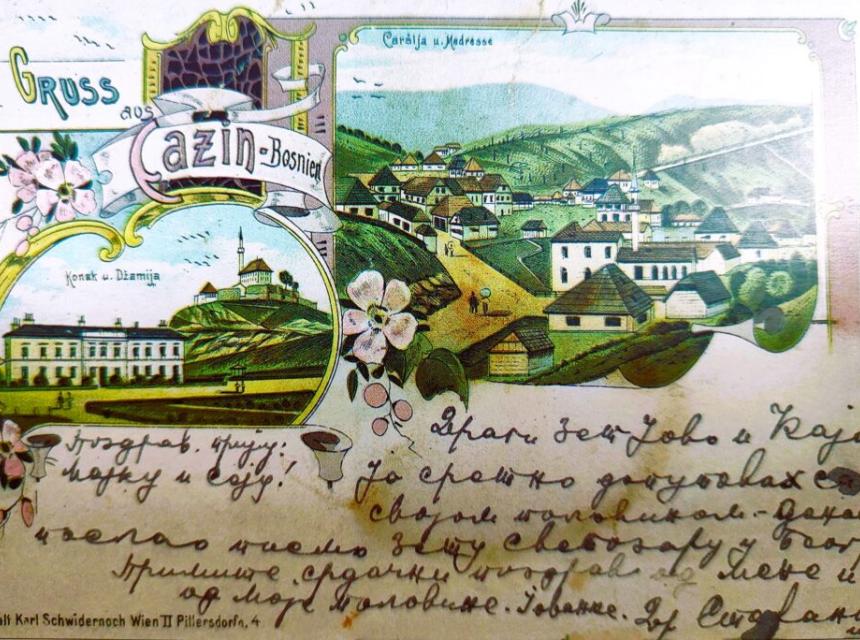 Gruss
aus
Cazin-Bosnien
Čaršija u. Medresse
Konak u. Džamija
Поздрав. прију.
мајку и сеју!
Драги зет Јово и Каја
Ја сретно допутовах са
својом половином - данас
послао писмо зету Светозару у
Примите срдачни поздрав од мене и
од моје половине. Јованке. Др
Karl Schwidernoch Wien II Pillersdorfg. 4